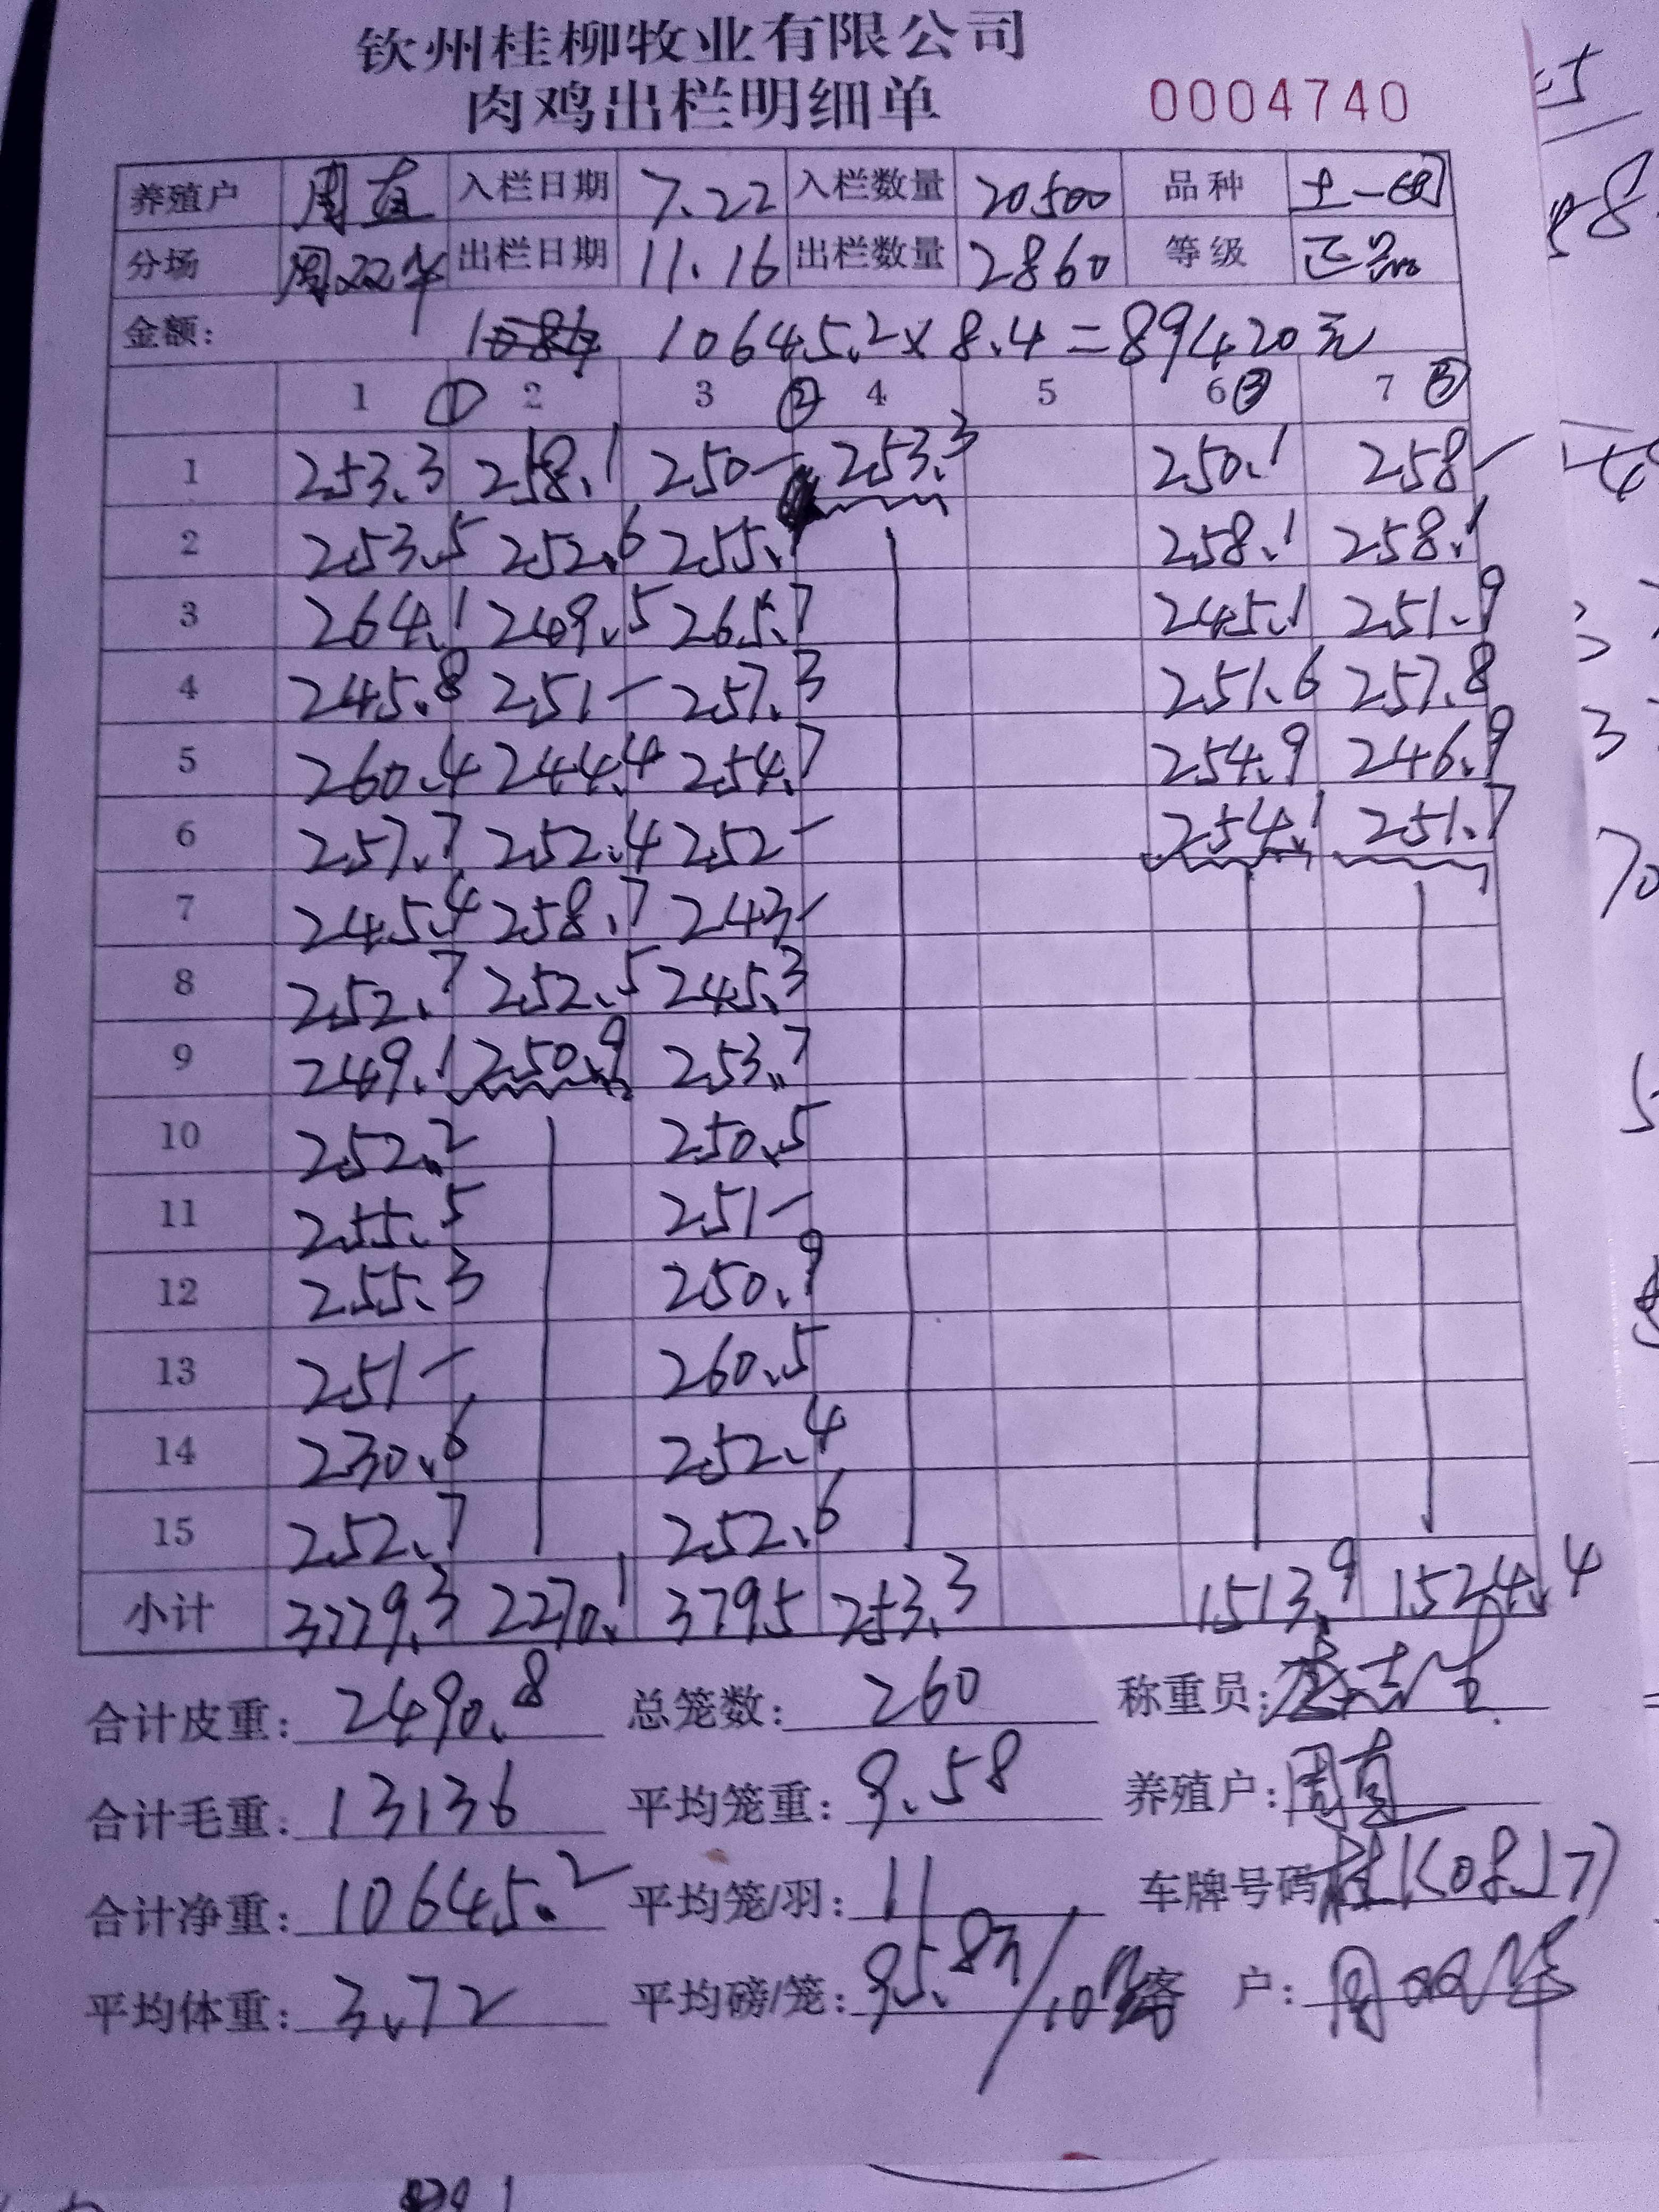 钦州桂柳牧业有限公司
肉鸡出栏明细单 0004740
养殖户 周直 入栏日期 7.22 入栏数量 20500 品种 土一
分场 周双华 出栏日期 11.16 出栏数量 2860 等级 正品
金额: 10645.2×8.4=89420元
1 ① 2 3 ② 4 5 6 ③ 7 ③
1 253.3 258.1 250- 253.3 250.1 258-
2 253.5 252.6 255. 258.1 258.1
3 264.1 249.5 265.7 245.1 251.9
4 245.8 251- 257.3 251.6 257.8
5 260.4 244.4 254.7 254.9 246.9
6 257.7 252.4 252- 254.1 251.7
7 245.4 258.7 243-
8 252.7 252.5 245.3
9 249.1 250.9 253.7
10 252.2 250.5
11 255.5 251-
12 255.3 250.9
13 251- 260.5
14 230.6 252.4
15 252.7 252.6
小计 3779.3 2270.1 3795 253.3 1513.9 1524.4
合计皮重: 2490.8 总笼数: 260 称重员:
合计毛重: 13136 平均笼重: 9.58 养殖户: 周直
合计净重: 10645.2 平均笼/羽: 11 车牌号码 桂K08J77
平均体重: 3.72 平均磅/笼: 95.8 /10 客 户: 周双华